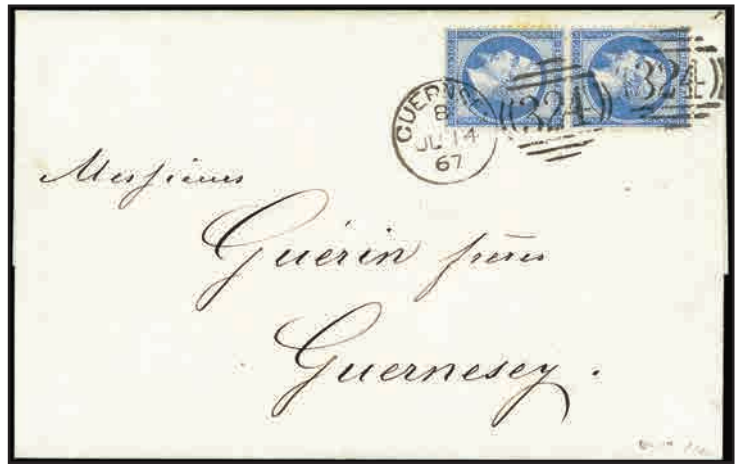 GUERNSEY
B
JU 14
67
324
324
Messieurs
Guérin frères
Guernesey.